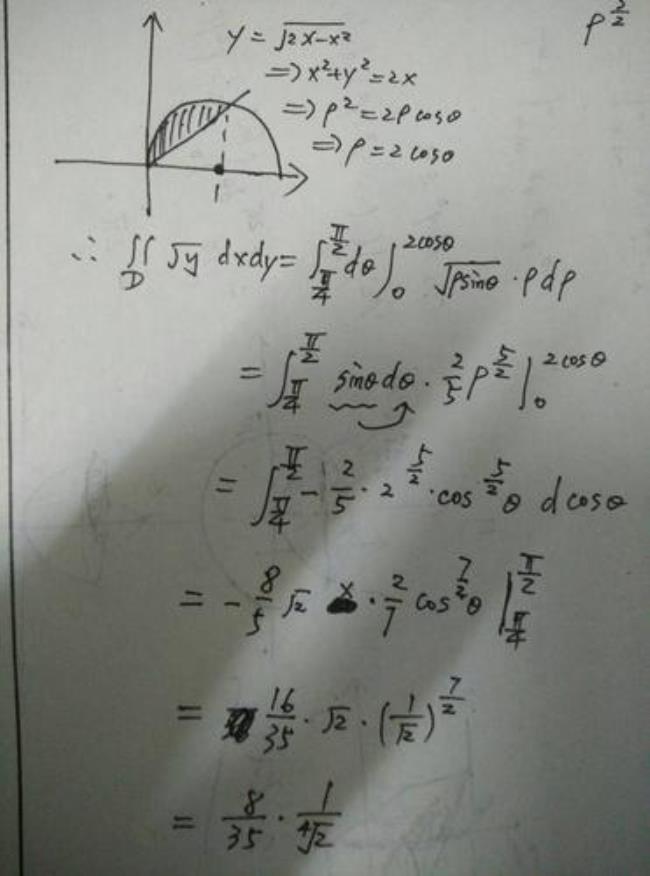 ρ^{2/2}
y = √(2x-x²)
⇒ x²+y²=2x
⇒ ρ² = 2ρcosθ
⇒ ρ = 2cosθ
1
∴ ∬_D √y dxdy = ∫_{π/4}^{π/2} dθ ∫_0^{2cosθ} √(ρsinθ) · ρdρ
= ∫_{π/4}^{π/2} sinθdθ · 2/5 ρ^{5/2} |_0^{2cosθ}
= ∫_{π/4}^{π/2} - 2/5 · 2^{5/2} · cos^{5/2}θ dcosθ
= - 8/5 √2 · 2/7 cos^{7/2}θ |_{π/4}^{π/2}
= 16/35 · √2 · (1/√2)^{7/2}
= 8/35 · 1/∜2